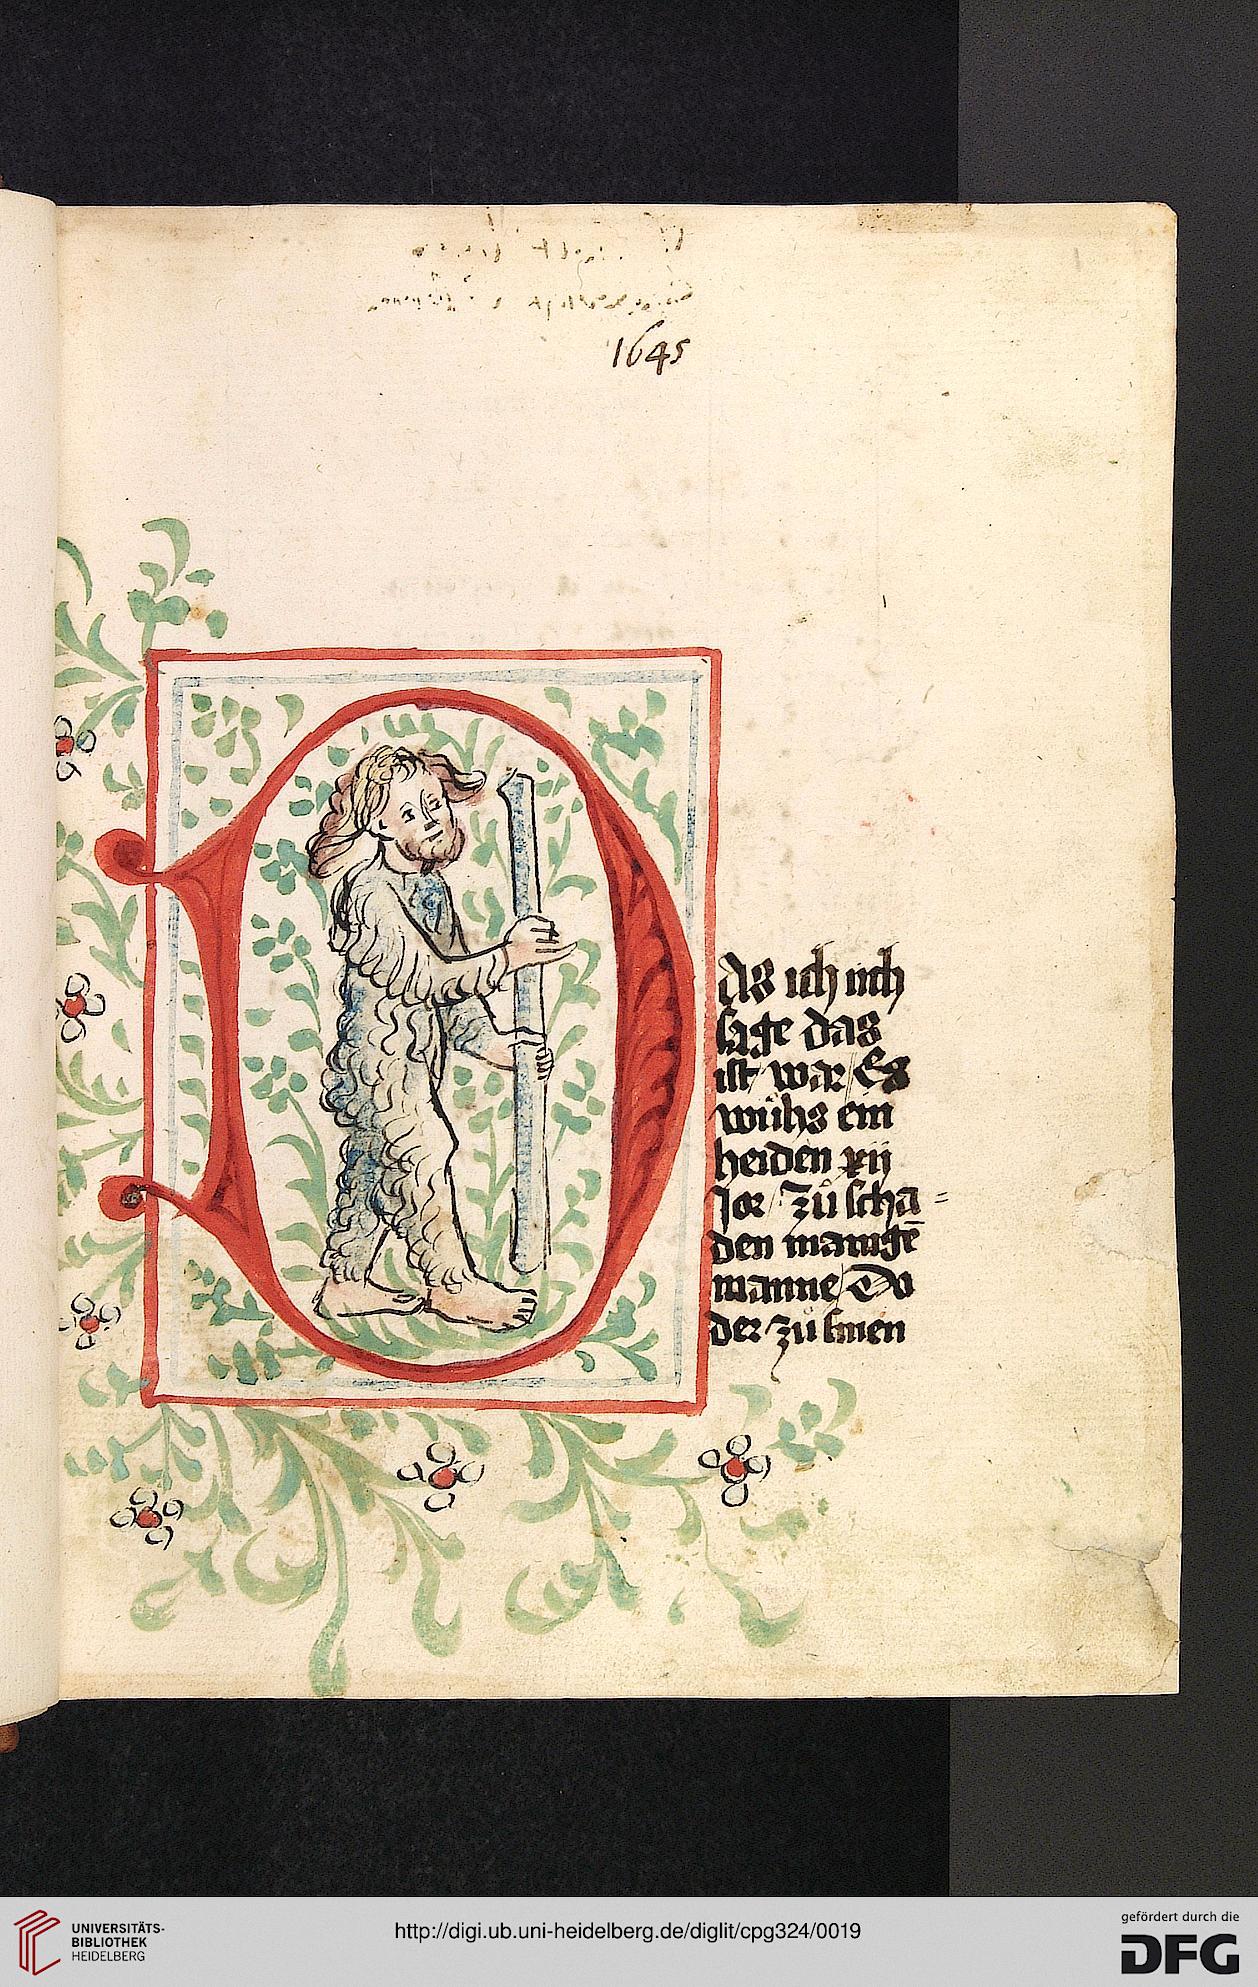 1645
D
As ich uch
sage das
ist / war / Es
wuͦhs ein
heiden xij
Jor / zuͦ scha=
den manigē
manne / Do
der / zuͦ sinen
UNIVERSITÄTS-
BIBLIOTHEK
HEIDELBERG
http://digi.ub.uni-heidelberg.de/diglit/cpg324/0019
gefördert durch die
DFG